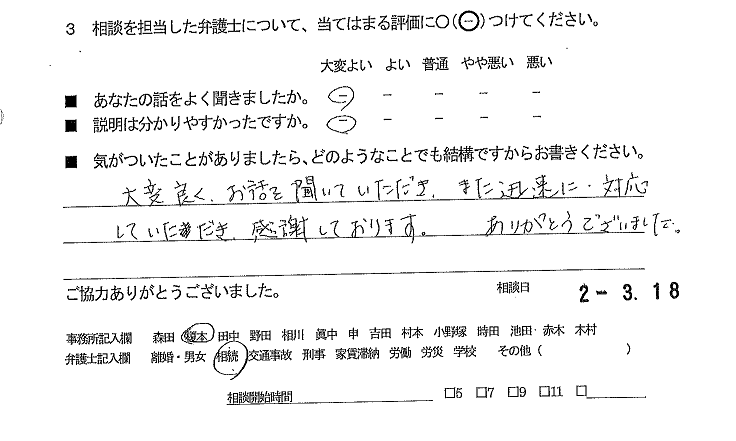 3 相談を担当した弁護士について、当てはまる評価に○(○)つけてください。
大変よい よい 普通 やや悪い 悪い
■ あなたの話をよく聞きましたか。 － － － － －
■ 説明は分かりやすかったですか。 － － － － －
■ 気がついたことがありましたら、どのようなことでも結構ですからお書きください。
大変良く、お話を聞いていただき、また迅速に対応
していただき、感謝しております。 ありがとうございました。
ご協力ありがとうございました。 相談日 2－3.18
事務所記入欄 森田 榎本 田中 野田 相川 眞中 申 吉田 村本 小野塚 時田 池田 赤木 木村
弁護士記入欄 離婚・男女 相続 交通事故 刑事 家賃滞納 労働 労災 学校 その他（ ）
相談開始時間 □5 □7 □9 □11 □